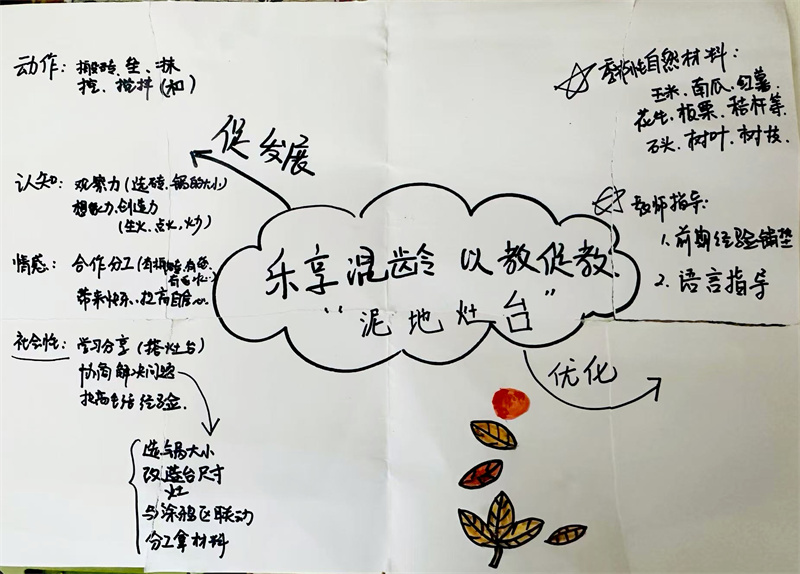 动作：搬砖、垒、抹
挖、搅拌（和）
认知：观察力（选砖、锅的大小）
想象力、创造力
（生火、点火，火力）
情感：合作分工（有搬砖，有
带来快乐、提高自
社会性：学习分享（搭灶台）
协商解决问题
提高生活经验.
选锅大小
改造台尺寸
灶
与涂鸦区联动
分工拿材料
促发展
乐享混龄 以教促教.
“泥地灶台”
优化
季节性自然材料：
玉米、南瓜、红薯、
花生、板栗、秸秆等、
石头、树叶、树枝、
教师指导：
1.前期经验铺垫
2.语言指导